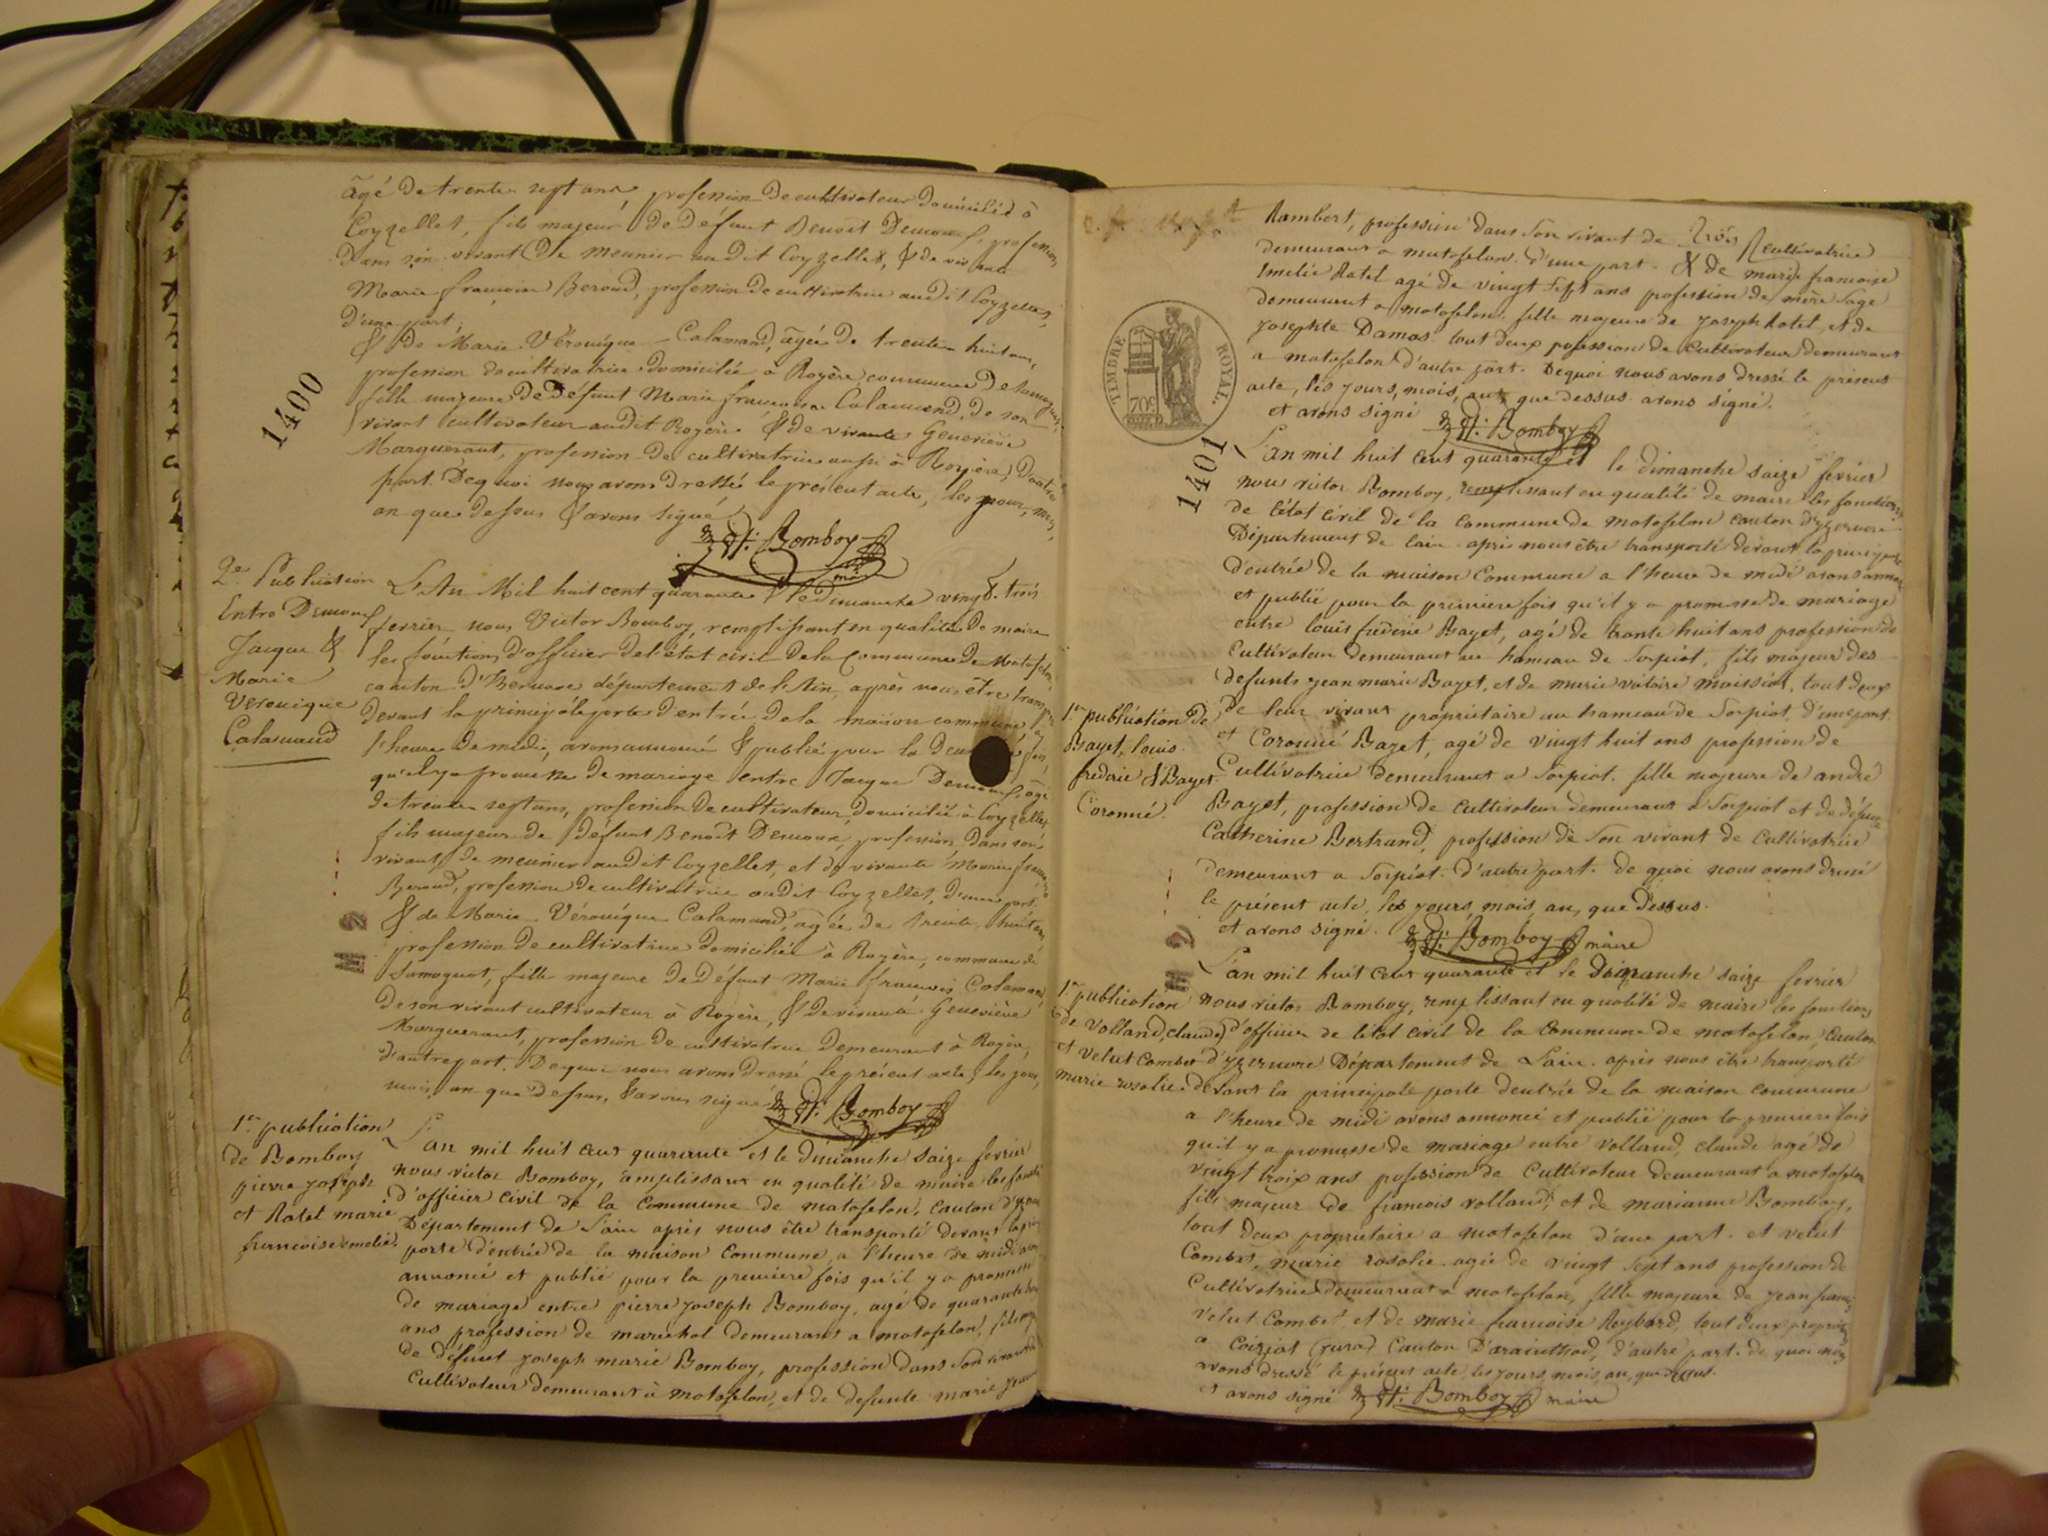 1400
âgé de trente sept ans, profession de cultivateur domicilié à
Coyzellet, fils majeur de Défunt Benoît Demoux, profession
Dans son vivant de meunier au dit Coyzellet, & de vivante
Marie françoise Beroud, profession de cultivatrice audit Coyzellet,
D'une part,
& De Marie Véronique Calamand, âgée de trente huit ans,
profession de cultivatrice domiciliée à Royère commune de Samognat,
fille majeure de Défunt Marie françois Calamand, de son
vivant cultivateur audit Royère & de vivante Geneviève
Marguerant, profession de cultivatrice aussi à Royère, D'autre
part. De quoi nous avons Dressé le présent acte, les jour, mois,
an que dessus & avons signé
Bomboy
2e Publication
Entre Demoux
Jacque &
Marie
Veronique
Calamand
L'An Mil huit cent quarante & le Dimanche vingt trois
fevrier nous Victor Bomboy, remplissant en qualité de maire
les fonctions d'officier de l'état civil de la Commune de Matafelon,
canton d'Izernore département de l'Ain, après nous être transporté
devant la principale porte d'entrée de la maison commune, à
l'heure de midi, avons annoncé & publié pour la fois,
qu'il y a promesse de mariage entre Jacque Demoux, âgé
de trente sept ans, profession de cultivateur, domicilié à Coyzellet
fils majeur de défunt Benoît Demoux, profession Dans son
vivant de meunier audit Coyzellet, et de vivante Marie françoise
Beroud, profession de cultivatrice audit Coyzellet, D'une part,
& de Marie Véronique Calamand, âgée de trente huit ans,
profession de cultivatrice domiciliée à Royère, commune de
Samognat, fille majeure de Défunt Marie françois Calamand,
De son vivant cultivateur à Royère, & de vivante Geneviève
Marguerant, profession de cultivatrice Demeurant à Royère,
d'autre part. De quoi nous avons Dressé le présent acte, les jour,
mois, an que dessus, & avons signé
Bomboy
1re publication
de Bomboy
pierre joseph
et Ratel marie
francoise emelie.
L'an mil huit cent quarante et le dimanche saize fevrier
nous victor Bomboy, remplissant en qualité de maire les fonctions
d'officier civil de la Commune de matafelon, Canton d'yzernore
Département de L'ain après nous être transporté devant la
porte d'entrée de la maison Commune, a l'heure de midi avons
annoncé et publié pour la première fois qu'il y a promesse
de mariage entre pierre joseph Bomboy, agé de quarante
ans profession de marechal demeurant a matafelon, fils majeur
de défunt joseph marie Bomboy, profession dans son vivant de
Cultivateur demeurant à matafelon, et de defunte marie
Rambert, profession dans son vivant de cultivatrice
demeurant a matafelon. d'une part. & de marie francoise
Emelie Ratel agé de vingt sept ans profession de mère sage
demeurant a matafelon. fille majeure de joseph Ratel, et de
josephte Damas tout deux profession de Cultivateur demeurant
a matafelon d'autre part. De quoi nous avons dressé le présent
acte, les jours, mois, an que dessus avons signé.
et avons signé Bomboy
TIMBRE ROYAL.
70c
1401
L'an mil huit cent quarante et le dimanche saize fevrier
nous victor Bomboy, remplissant en qualité de maire les fonctions
de l'état civil de la Commune de matafelon canton d'yzernore
Département de L'ain après nous être transporté devant la principale
d'entrée de la maison Commune a l'heure de midi avons annoncé
et publié pour la première fois qu'il y a promesse de mariage
entre louis frederic Bayet, agé de trante huit ans profession de
Cultivateur demeurant au hameau de Sorpiat, fils majeur des
defunts jean marie Bayet, et de marie victoire moissiat, tout deux
de leur vivant propriétaire au hameau de Sorpiat, d'une part.
1re publication de
Bayet, louis
frederic & Bayet
Coronné.
et Coronné Bayet, agé de vingt huit ans profession de
Cultivatrice demeurant a Sorpiat. fille majeure de andré
Bayet, profession de cultivateur demeurant a Sorpiat et de défunte
Catherine Bertrand, profession de son vivant de Cultivatrice
demeurant a Sorpiat. d'autre part. de quoi nous avons dressé
le présent acte, les jours, mois, an, que dessus.
et avons signé. Bomboy maire
1re publication
de Volland, claude
et Velut Combet
marie rosalie.
L'an mil huit cent quarante et le dimanche saize fevrier
nous victor Bomboy, remplissant en qualité de maire les fonctions
d'officier de l'état civil de la Commune de matafelon, Canton
d'yzernore Département de L'ain. après nous être transporté
devant la principale porte d'entrée de la maison Commune
a l'heure de midi avons annoncé et publié pour la premiere fois
qu'il y a promesse de mariage entre Volland, claude agé de
vingt troix ans profession de Cultivateur demeurant a matafelon
fils majeur de francois volland, et de marianne Bomboy,
tout deux proprietaire a matafelon d'une part. et velut
Combet, marie rosalie. agée de vingt sept ans profession de
Cultivatrice demeurant a matafelon, fille majeure de jean francois
Velut Combet et de marie francoise Reybard, tout deux propriétaire
a Coisiat (jura) Canton D'arainthod, d'autre part. de quoi nous
avons dressé le présent acte, les jours, mois, an, que dessus.
et avons signé Bomboy maire